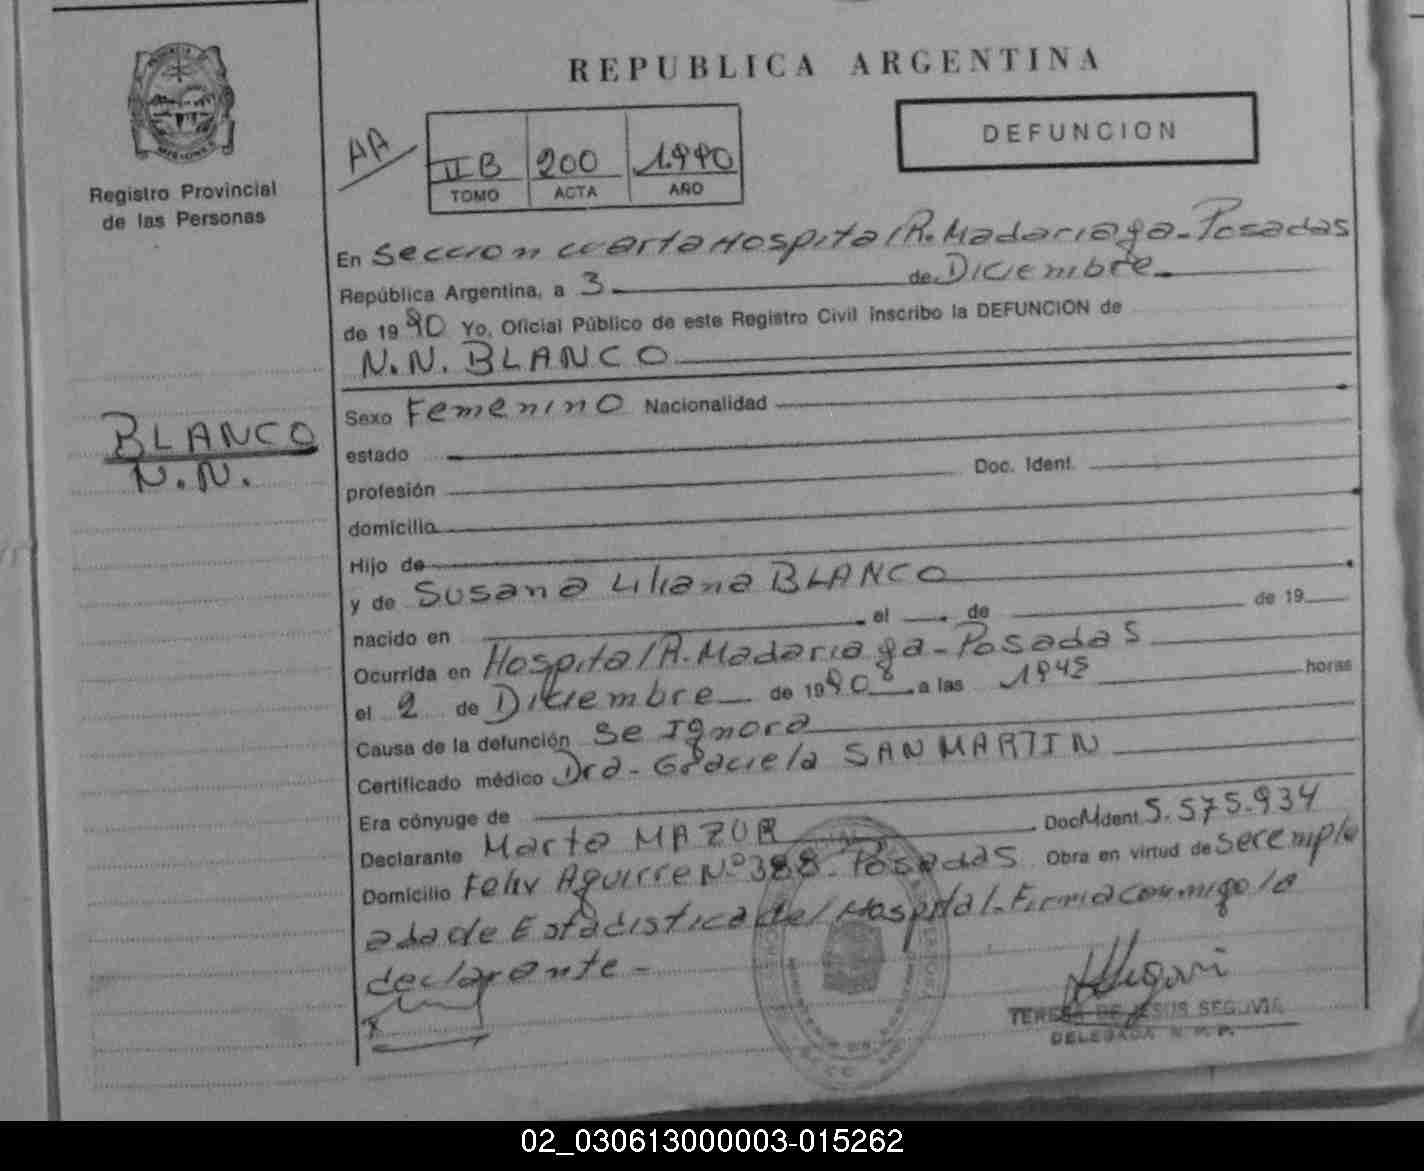 REPUBLICA ARGENTINA
DEFUNCION
Registro Provincial
de las Personas
AA
II B 200 1.990
TOMO ACTA AÑO
En Seccion cuarta Hospital R. Madariaga - Posadas
República Argentina, a 3 de Diciembre
de 1990 Yo, Oficial Público de este Registro Civil inscribo la DEFUNCION de
N.N. BLANCO
BLANCO
N.N.
Sexo Femenino Nacionalidad
estado
profesión Doc. Ident.
domicilio
Hijo de
y de Susana Liliana BLANCO
nacido en el de de 19
Ocurrida en Hospital R. Madariaga - Posadas
el 2 de Diciembre de 1990 a las 1945 horas
Causa de la defunción se Ignora
Certificado médico Dra - Graciela SAN MARTIN
Era cónyuge de
Declarante Marta MAZUR Doc. Ident 5.575.934
Domicilio Felix Aguirre Nº 388 - Posadas Obra en virtud de ser emple
ada de Estadistica del Hospital - Firma conmigo la
declarante -
TERESA DE JESUS SEGOVIA
DELEGADA R. P. P.
02_030613000003-015262